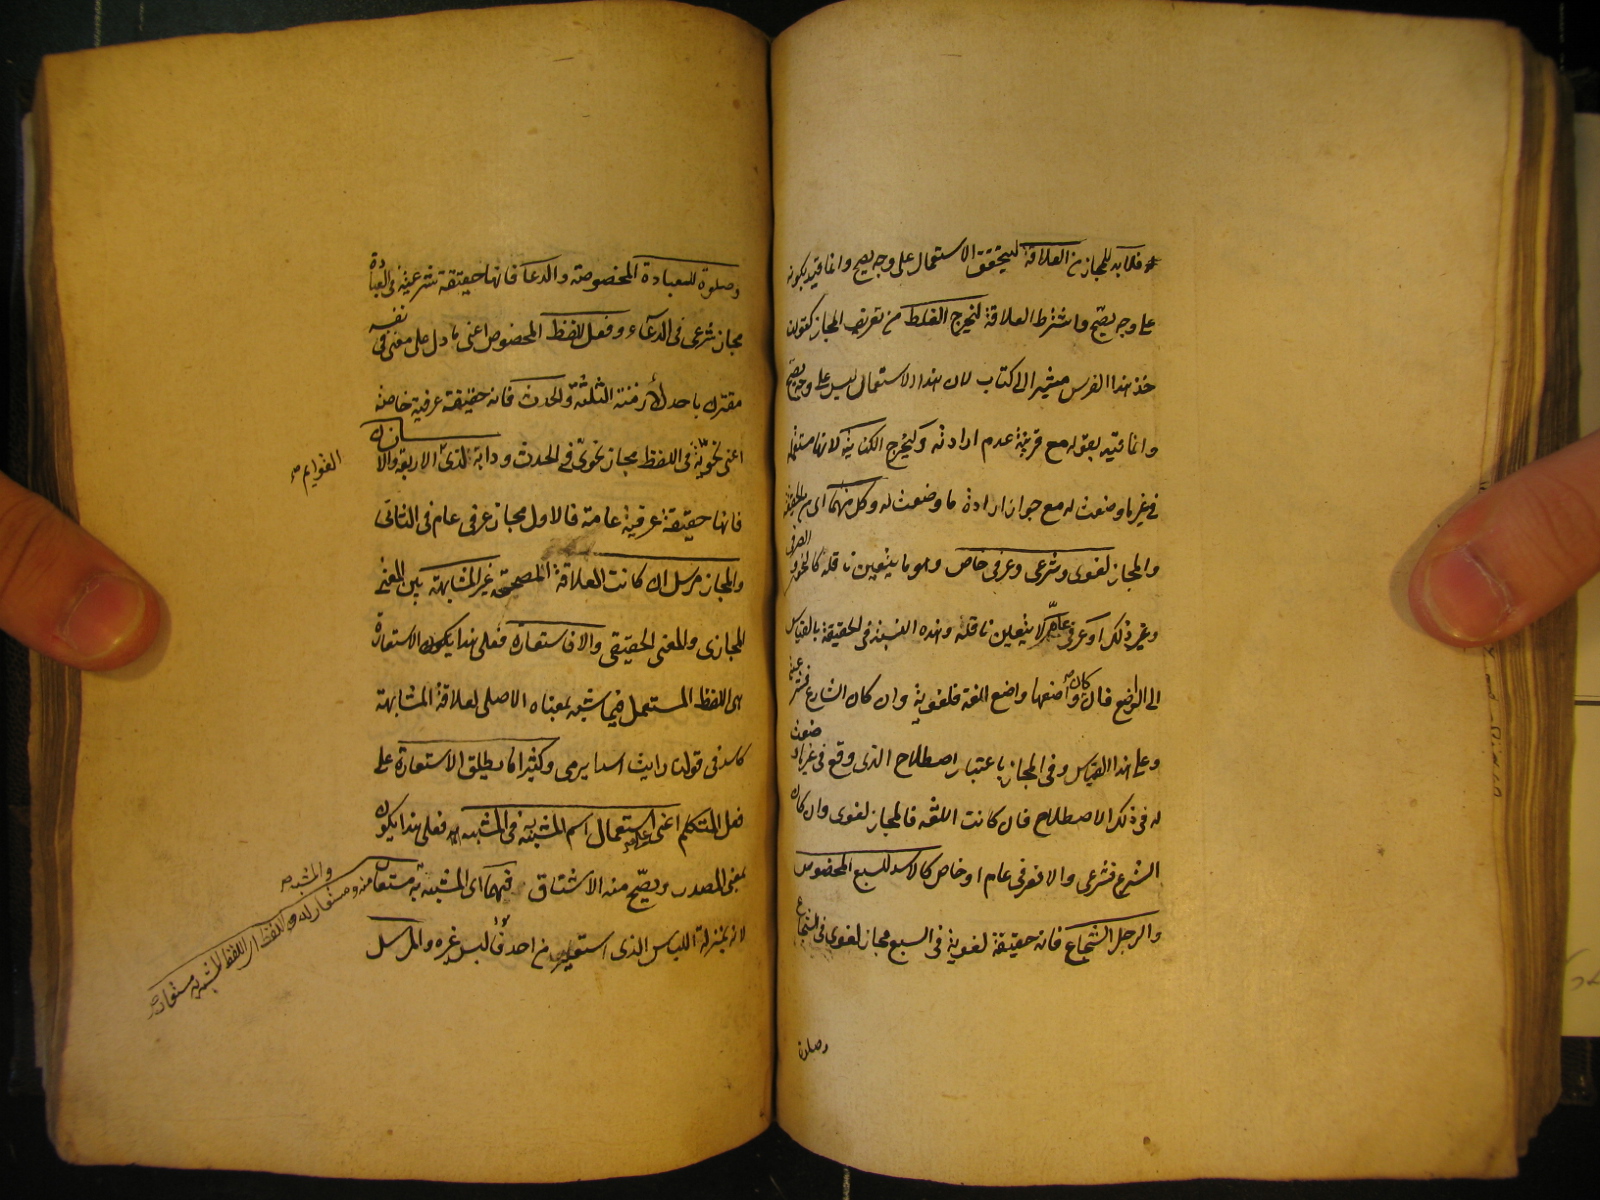 فلا بد للمجاز من العلاقة ليتحقق الاستعمال على وجه يصح وانما قيد بكونه
على وجه يصح واشترط العلاقة ليخرج الغلط من تعريف المجاز كقولنا
خذ هذا الفرس مشيرا الى كتاب لان هذا الاستعمال ليس على وجه يصح
وانما قيد بقوله مع قرينة عدم ارادته وليخرج الكناية لانها مستعملة
في غير ما وضعت له مع جواز ارادة ما وضعت له وكل منهما اى من الحقيقة
والمجاز لغوى وشرعى وعرفى خاص وهو ما يتعين ناقله كالنحوى و الصرفى
وغير ذلك او عرفى عام لا يتعين ناقله وهذه النسبة فى الحقيقة بالقياس
الى الواضع فان كان واضعها واضع اللغة فلغوية وان كان الشارع فشرعية
وعلى هذا القياس وفى المجاز باعتبار اصطلاح الذى وقع فى غير ما وضعت
له فى ذلك الاصطلاح فان كانت اللغة فالمجاز لغوى وان كان
الشرع فشرعى والا فعرفى عام او خاص كالاسد للسبع المخصوص
والرجل الشجاع فانه حقيقة لغوية فى السبع مجاز لغوى فى الشجاع
وصلوة
وصلوة للعبادة المخصوصة والدعا فانها حقيقة شرعية فى العبادة
مجاز شرعى فى الدعاء وفعل للفظ المخصوص اعنى ما دل على معنى فى نفسه
مقترن باحد الأزمنة الثلثة والحدث فانه حقيقة عرفية خاصة
اعنى نحوية فى اللفظ مجاز نحوى فى الحدث ودابة لذى الاربع والانسان
القوايم صح
فانها حقيقة عرفية عامة فالاول مجاز عرفى عام فى الثانى
والمجاز مرسل ان كانت العلاقة المصححة غير المشابهة بين المعنى
المجازى والمعنى الحقيقى والا فاستعارة فعلى هذا يكون الاستعارة
هى اللفظ المستعمل فيما شبه بمعناه الاصلى لعلاقة المشابهة
كاسد فى قولنا رايت اسدا يرمى وكثيرا ما يطلق الاستعارة على
فعل المتكلم اعنى استعمال اسم المشبه به فى المشبه فعلى هذا يكون
بمعنى المصدر ويصح منه الاشتقاق فهما اى المشبه به مستعار منه
والمشبه صح
ومستعار له واللفظ اى اللفظ المشبه به مستعار صح
لانه بمنزلة اللباس الذى استعير من احد فالبس غيره والمرسل